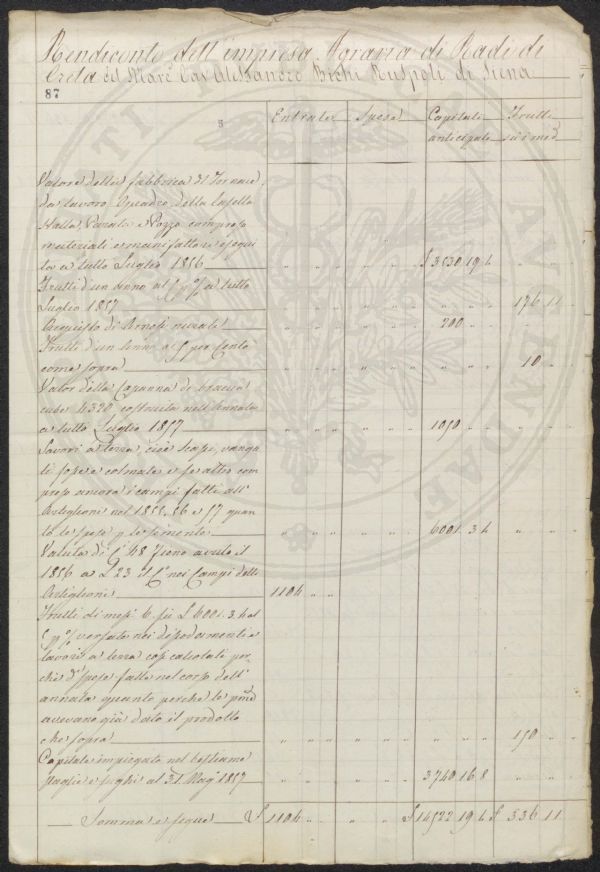 Rendiconto dell'impresa Agraria di Radi di
Creta del Marc. Cav. Alessandro Bichi Ruspoli di Siena
87
5
Entrate Spese Capitali Frutti
anticipati sui med.
Valore della fabbrica di Fornace
da lavoro Quadro, della
Stalla, e Pozzo compreso
materiali e manifattura esegui
ta a tutto Luglio 1856 " " " " " " £ 3530 19 4 " "
Frutti d'un anno al 5 p % a tutto
Luglio 1857 " " " " " " " " " 176 11 "
Acquisto di Arnesi rurali " " " " " " 200 " " " "
Frutti d'un anno a 5 per Cento
come sopra " " " " " " " " " 10 " "
Valor della Capanna di braccia
cube 4320 costruita nell'annata
a tutto Luglio 1857 " " " " " " 1050 " " " "
Lavori a terra, cioè scassi, vanga
ti fosse e colmate e se altro com
preso ancora i campi fatti all'
Artiglione nel 1855. 56 e 57 quan
to le spese p le sementi " " " " " 6001 3 4 " " "
Valuta di 48 Fieno avuto il
1856 a £ 23 il nei Campi dello
Artiglione 1104 " "
Frutti di mesi 6 su £ 6001. 3. 4 al
5 p % versate nei disodamenti e
lavori a terra così calcolati per
chè d' spese fatte nel corso dell'
annata quanto perchè le
avevano già dato il prodotto
che sopra " " " " " " " " " 150 " "
Capitale impiegato nel bestiame
paglie e fieghi al 31. Mag. 1857 " " " " " 3740 16 8 " "
Somma e segue £ 1104 " " " " " £ 14522 19 4 £ 336 11